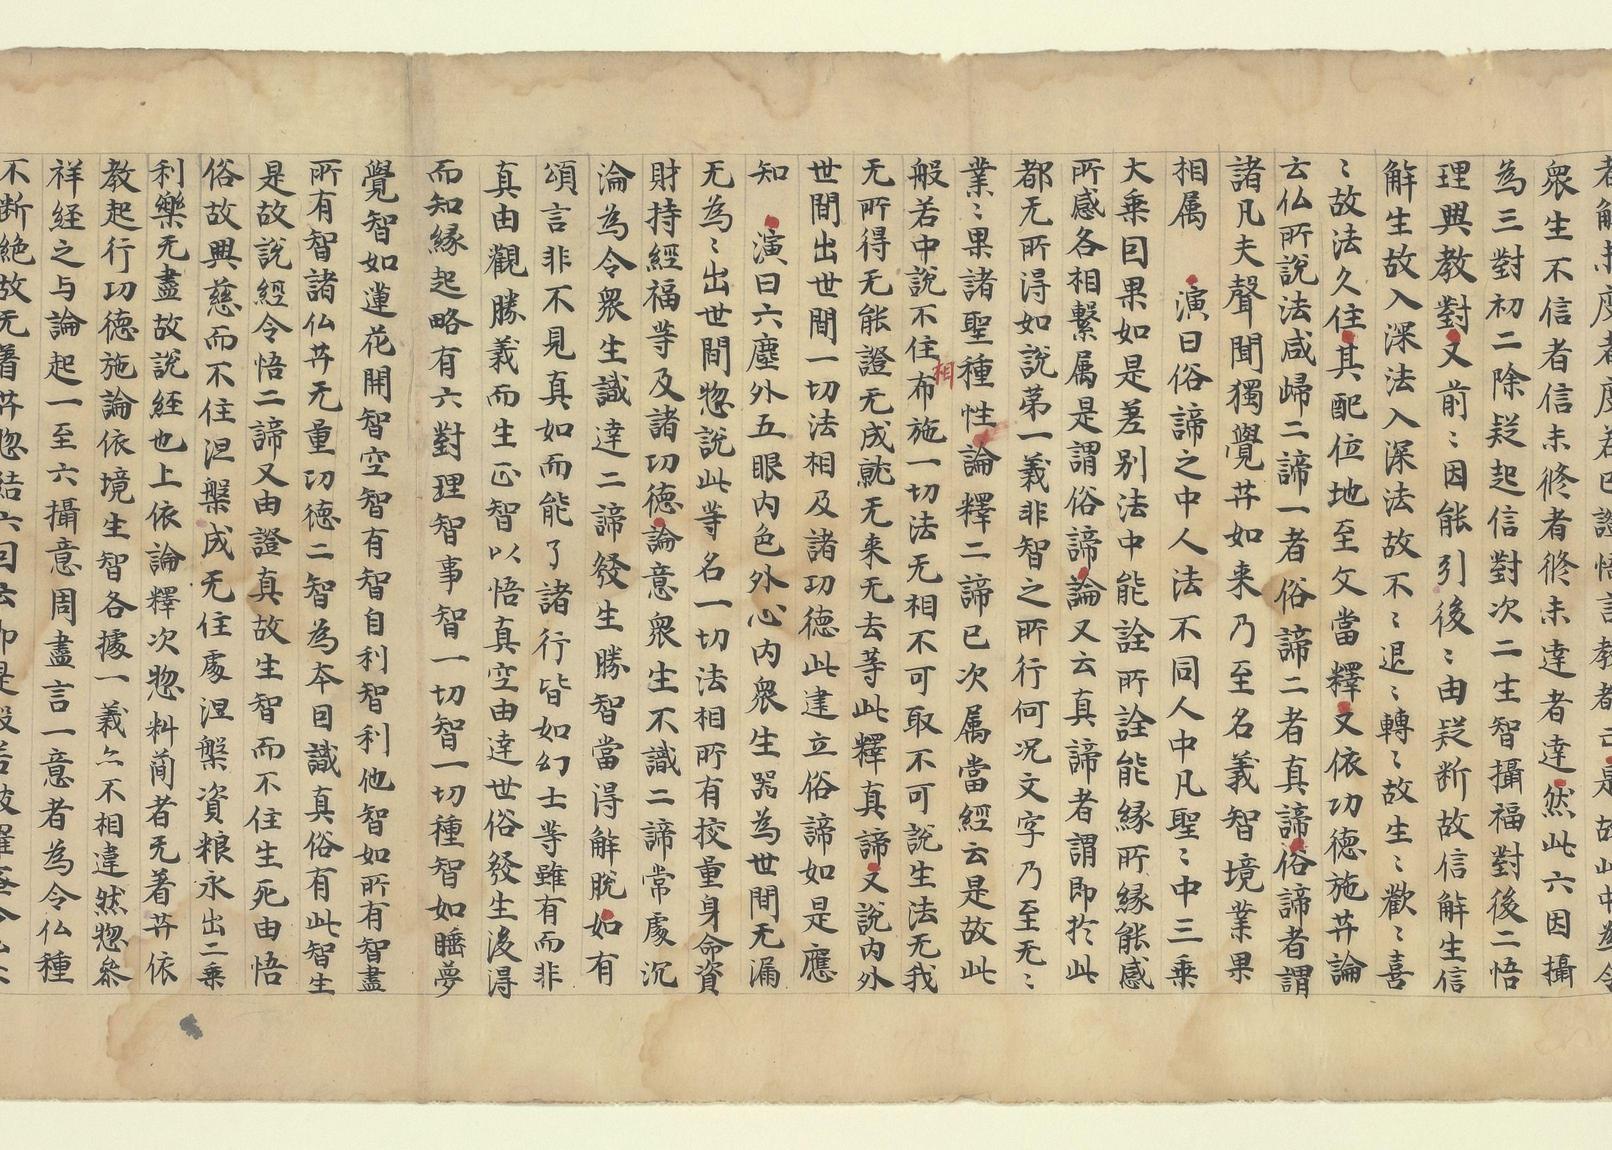 衆生不信者信未修者修未達者達然此六因攝
為三對初二除疑起信對次二生智攝福對後二悟
理興教對又前〻因能引後〻由疑断故信解生信
解生故入深法入深法故不〻退〻轉〻故生〻歡〻喜
〻故法久住其配位地至文當釋又依功德施菩論
云仏所說法咸歸二諦一者俗諦二者真諦俗諦者謂
諸凡夫聲聞獨覺菩如来乃至名義智境業果
相属　演曰俗諦之中人法不同人中凡聖〻中三乗
大乗因果如是差别法中能詮所詮能緣所緣能感
所感各相繫属是謂俗諦論又云真諦者謂即扵此
都无所得如說苐一義非智之所行何况文字乃至无〻
業〻果諸聖種性論釋二諦已次属當經云是故此
般若中說不住相布施一切法无相不可取不可說生法无我
无所得无能證无成就无来无去等此釋真諦又說内外
世間出世間一切法相及諸功德此建立俗諦如是應
知　演曰六塵外五眼内色外心内衆生器為世間无漏
无為〻出世間惣說此等名一切法相所有挍量身命資
財持經福等及諸功德論意衆生不識二諦常處沉
淪為令衆生識達二諦發生勝智當得解脫如有
頌言非不見真如而能了諸行皆如幻士等雖有而非
真由觀勝義而生正智以悟真空由達世俗發生後得
而知緣起略有六對理智事智一切智一切種智如睡夢
覺智如蓮花開智空智有智自利智利他智如所有智盡
所有智諸仏菩无量功德二智為本因識真俗有此智生
是故說經令悟二諦又由證真故生智而不住生死由悟
俗故興慈而不住涅槃成无住處涅槃資粮永出二乗
利樂无盡故說経也上依論釋次惣料簡者无著菩依
教起行功德施論依境生智各據一義亦不相違然惣叅
祥経之与論起一至六攝意周盡言一意者為令仏種
不断絶故无著菩惣結六因云即是般若波羅蜜令仏